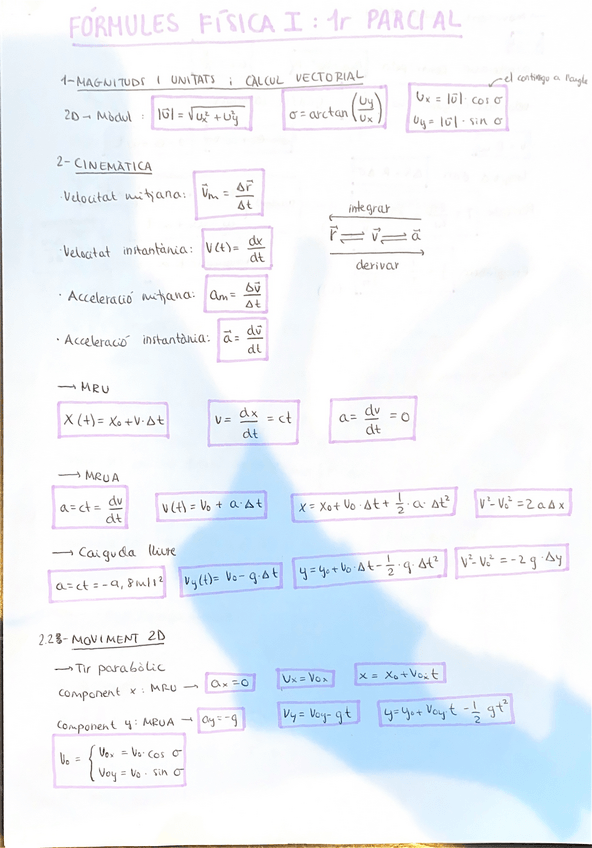 FÓRMULES FÍSICA I : 1r PARCIAL
1-MAGNITUDS I UNITATS i CÀLCUL VECTORIAL
el contigu a l'angle
2D → Mòdul : |ū| = √(Ux² + Uy²) σ = arctan (Uy/Ux) Ux = |ū| · cos σ
Uy = |ū| · sin σ
2- CINEMÀTICA
· Velocitat mitjana: v⃗m = Δr⃗/Δt
integrar
r⃗ ⇌ v⃗ ⇌ a⃗
derivar
· Velocitat instantània: V(t) = dx/dt
· Acceleració mitjana: am = Δv⃗/Δt
· Acceleració instantània: a⃗ = dv⃗/dt
→ MRU
X(t) = X0 + V·Δt v = dx/dt = ct a = dv/dt = 0
→ MRUA
a = ct = dv/dt v(t) = V0 + a·Δt x = x0 + V0·Δt + 1/2·a·Δt² V² - V0² = 2aΔx
→ Caiguda lliure
a = ct = -9,8m/s² Vy(t) = V0 - g·Δt y = y0 + V0·Δt - 1/2·g·Δt² V² - V0² = -2g·Δy
MOVIMENT 2D
→ Tir parabòlic
component x : MRU → ax = 0 Vx = V0x x = X0 + V0x t
component y : MRUA → ay = -g Vy = V0y - gt y = y0 + V0y t - 1/2 gt²
V0 = { V0x = V0·cos σ
V0y = V0 · sin σ